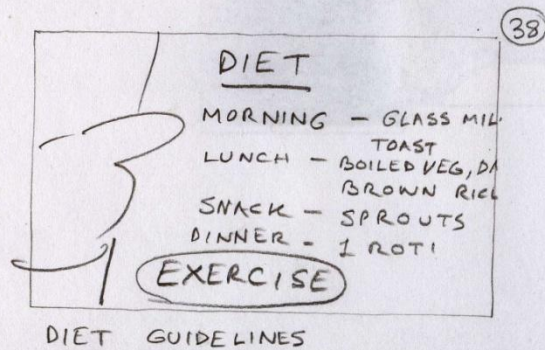 38
DIET
MORNING - GLASS MIL
TOAST
LUNCH - BOILED VEG, DA
BROWN RICE
SNACK - SPROUTS
DINNER - 1 ROTI
EXERCISE
DIET GUIDELINES